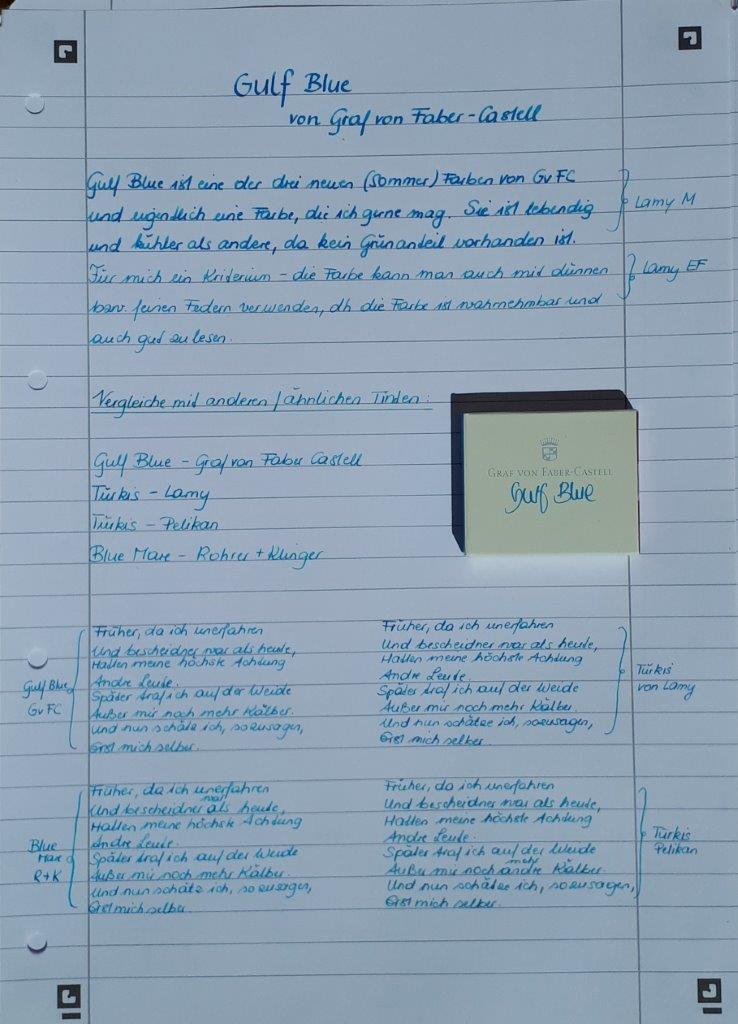 Gulf Blue
von Graf von Faber-Castell
Gulf Blue ist eine der drei neuen (Sommer) Farben von GvFC
und eigentlich eine Farbe, die ich gerne mag. Sie ist lebendig
und kühler als andere, da kein Grünanteil vorhanden ist.
Lamy M
Für mich ein Kriterium - die Farbe kann man auch mit dünnen
bzw. feinen Federn verwenden, dh die Farbe ist wahrnehmbar und
auch gut zu lesen.
Lamy EF
Vergleiche mit anderen / ähnlichen Tinten:
Gulf Blue - Graf von Faber Castell
Türkis - Lamy
Türkis - Pelikan
Blue Mare - Rohrer + Klinger
GRAF VON FABER-CASTELL
Gulf Blue
Gulf Blue
GvFC
Früher, da ich unerfahren
Und bescheidner war als heute,
Hatten meine höchste Achtung
Andre Leute.
Später traf ich auf der Weide
Außer mir noch mehr Kälber.
Und nun schätz ich, sozusagen,
Erst mich selber.
Früher, da ich unerfahren
Und bescheidner war als heute,
Hatten meine höchste Achtung
Andre Leute.
Später traf ich auf der Weide
Außer mir noch mehr Kälber.
Und nun schätze ich, sozusagen,
Erst mich selber.
Türkis
von Lamy
Blue
Mare
R+K
Früher, da ich unerfahren
Und bescheidner war als heute,
Hatten meine höchste Achtung
Andre Leute.
Später traf ich auf der Weide
Außer mir noch mehr Kälber.
Und nun schätz ich, sozusagen,
Erst mich selber.
Früher, da ich unerfahren
Und bescheidner war als heute,
Hatten meine höchste Achtung
Andre Leute.
Später traf ich auf der Weide
Außer mir noch mehr andre Kälber.
Und nun schätze ich, sozusagen,
Erst mich selber.
Türkis
Pelikan